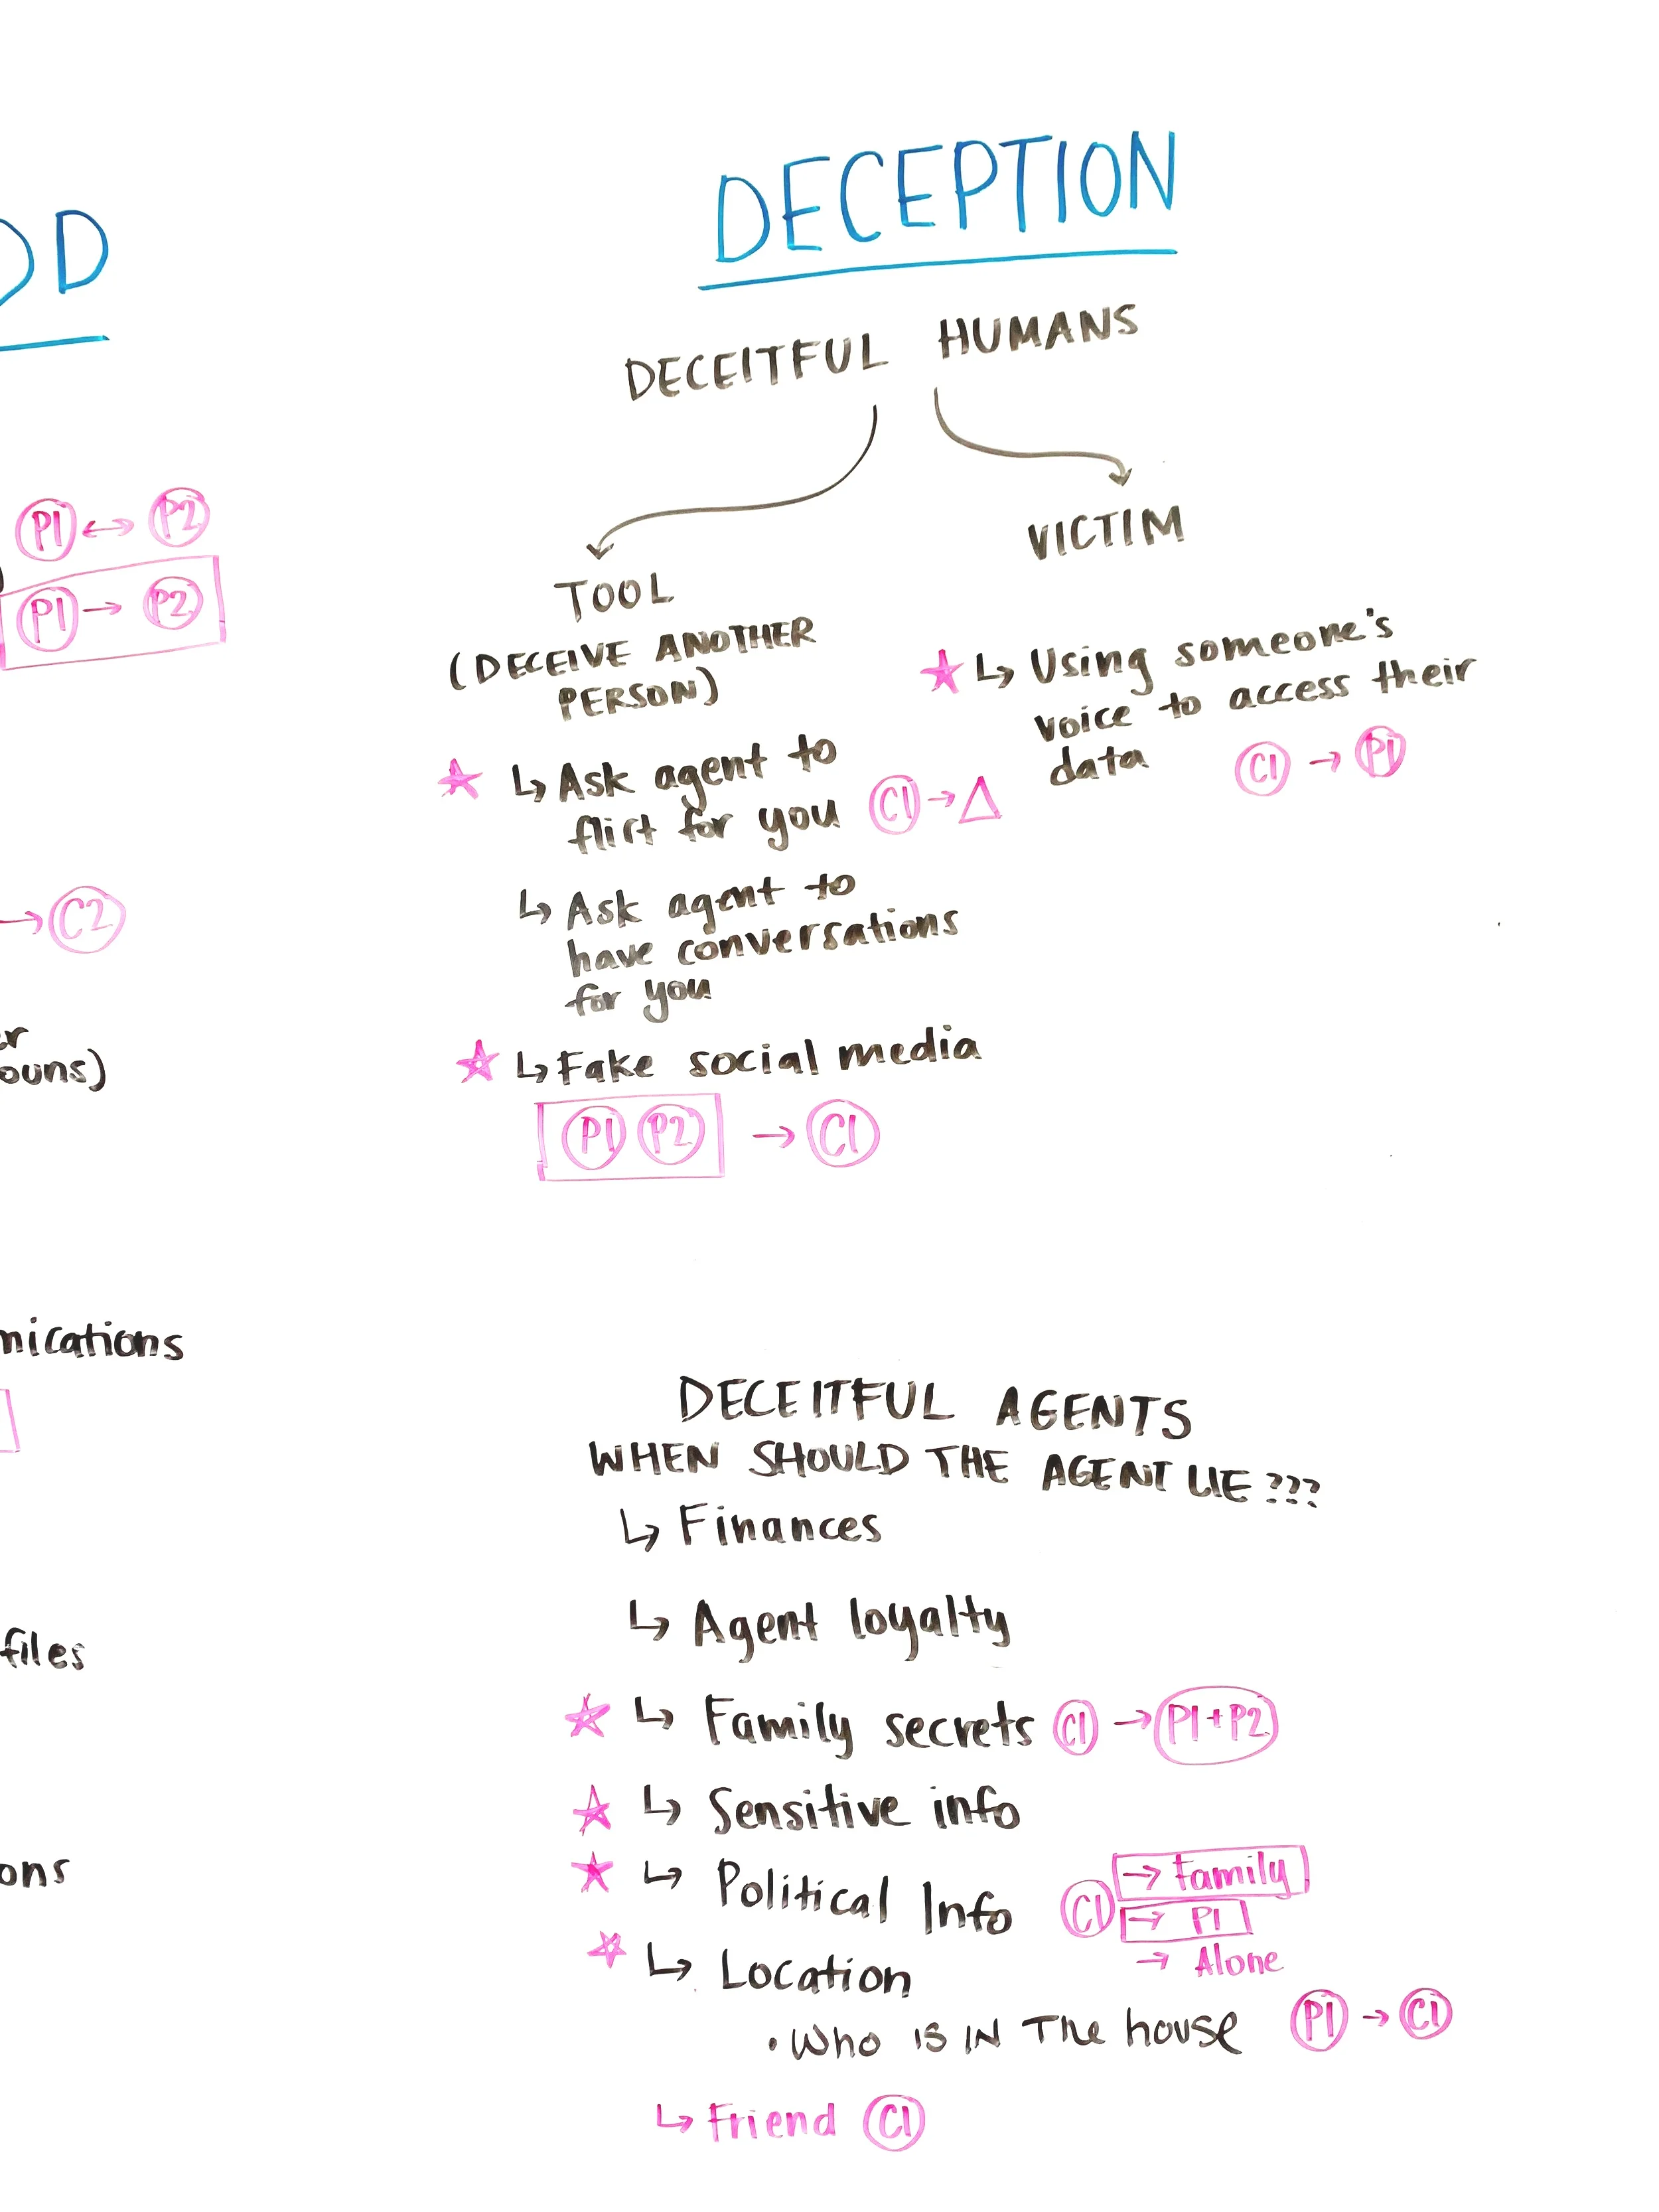 DECEPTION
DECEITFUL HUMANS
TOOL
(DECEIVE ANOTHER
PERSON)
↳ Ask agent to
flirt for you C1 → △
↳ Ask agent to
have conversations
for you
↳ Fake social media
P1 P2 → C1
VICTIM
↳ Using someone's
voice to access their
data C1 → P1
DECEITFUL AGENTS
WHEN SHOULD THE AGENT LIE???
↳ Finances
↳ Agent loyalty
↳ Family secrets C1 → P1+P2
↳ Sensitive info
↳ Political Info C1 → Family
→ P1
→ Alone
↳ Location
• Who is in the house P1 → C1
↳ Friend C1
P1 ↔ P2
P1 → P2
→ C2
ouns)
nications
files
ons